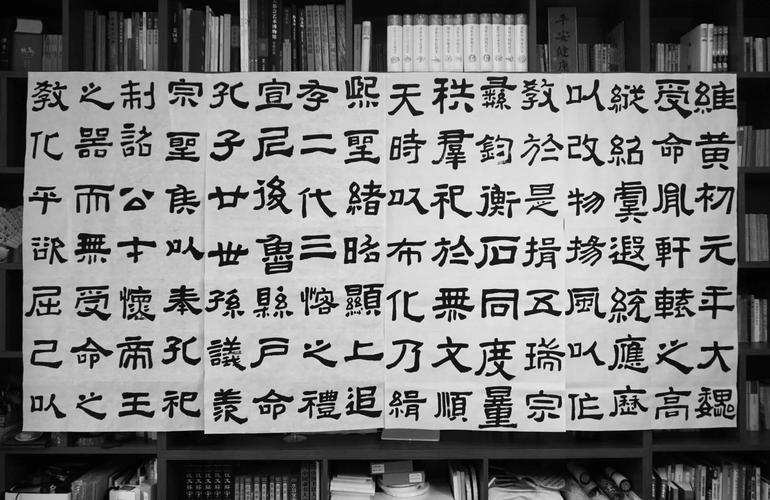 維黃初元年大魏
受命胤軒轅之高
縱紹虞遐統應歷
以改物揚風以作
教於是揖五瑞宗
彝鈞衡石同度量
秩羣祀於無文順
天時以布化乃緝
熙聖緒昭顯上追
存二代三愙之禮
宣尼後魯縣戶命
孔子廿世孫議羨
宗聖侯以奉孔祀
制詔公才懷帝王
之器而無受命之
教化乎欲屈己以
平安健康